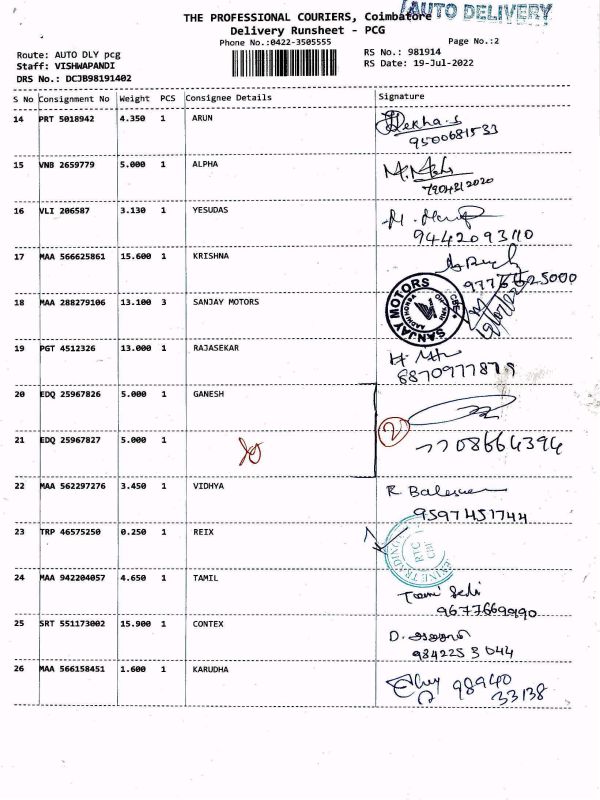 THE PROFESSIONAL COURIERS, Coimbatore
AUTO DELIVERY
Delivery Runsheet - PCG
Phone No.:0422-3505555
Page No.:2
Route: AUTO DLY pcg
RS No.: 981914
Staff: VISHWAPANDI
RS Date: 19-Jul-2022
DRS No.: DCJB98191402
S No Consignment No Weight PCS Consignee Details Signature
14 PRT 5018942 4.350 1 ARUN
9500681533
15 VNB 2659779 5.000 1 ALPHA
16 VLI 206587 3.130 1 YESUDAS
9442093110
17 MAA 566625861 15.600 1 KRISHNA
18 MAA 288279106 13.100 3 SANJAY MOTORS
SANJAY MOTORS
CBE
19 PGT 4512326 13.000 1 RAJASEKAR
20 EDQ 25967826 5.000 1 GANESH
2
21 EDQ 25967827 5.000 1
7708664394
22 MAA 562297276 3.450 1 VIDHYA
9597451744
23 TRP 46575250 0.250 1 REIX
24 MAA 942204057 4.650 1 TAMIL
9677669990
25 SRT 551173002 15.900 1 CONTEX
D.
984225 3 044
26 MAA 566158451 1.600 1 KARUDHA
98940
33138